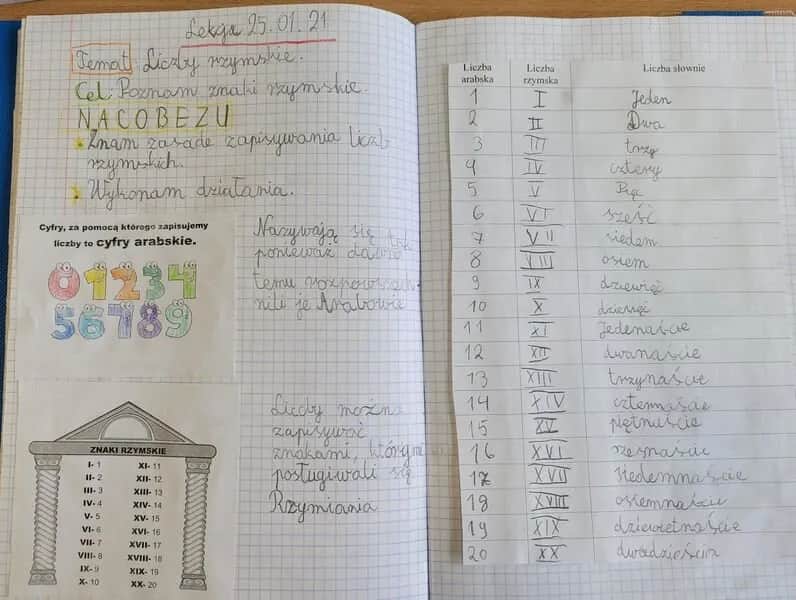 Lekcja 25.01.21
Temat: Liczby rzymskie.
Cel: Poznam znaki rzymskie.
NACOBEZU
Znam zasadę zapisywania liczb
rzymskich.
Wykonam działania.
Cyfry, za pomocą którego zapisujemy
liczby to cyfry arabskie.
0 1 2 3 4
5 6 7 8 9
Nazywają się tak
ponieważ dawno
temu rozpowszech
nili je Arabowie
ZNAKI RZYMSKIE
I- 1 XI- 11
II- 2 XII- 12
III- 3 XIII- 13
IV- 4 XIV- 14
V- 5 XV- 15
VI- 6 XVI- 16
VII- 7 XVII- 17
VIII- 8 XVIII- 18
IX- 9 XIX- 19
X- 10 XX- 20
Liczby można
zapisywać
znakami, którymi
posługiwali się
Rzymiania
Liczba arabska Liczba rzymska Liczba słownie
1 I Jeden
2 II Dwa
3 III trzy
4 IV cztery
5 V Pięc
6 VI sześć
7 VII siedem
8 VIII osiem
9 IX dziewięć
10 X dziesięć
11 XI Jedenaście
12 XII dwanaście
13 XIII trzynaście
14 XIV
15 XV
16 XVI
17 XVII siedemnaście
18 XVIII
19 XIX
20 XX dwadzieścia